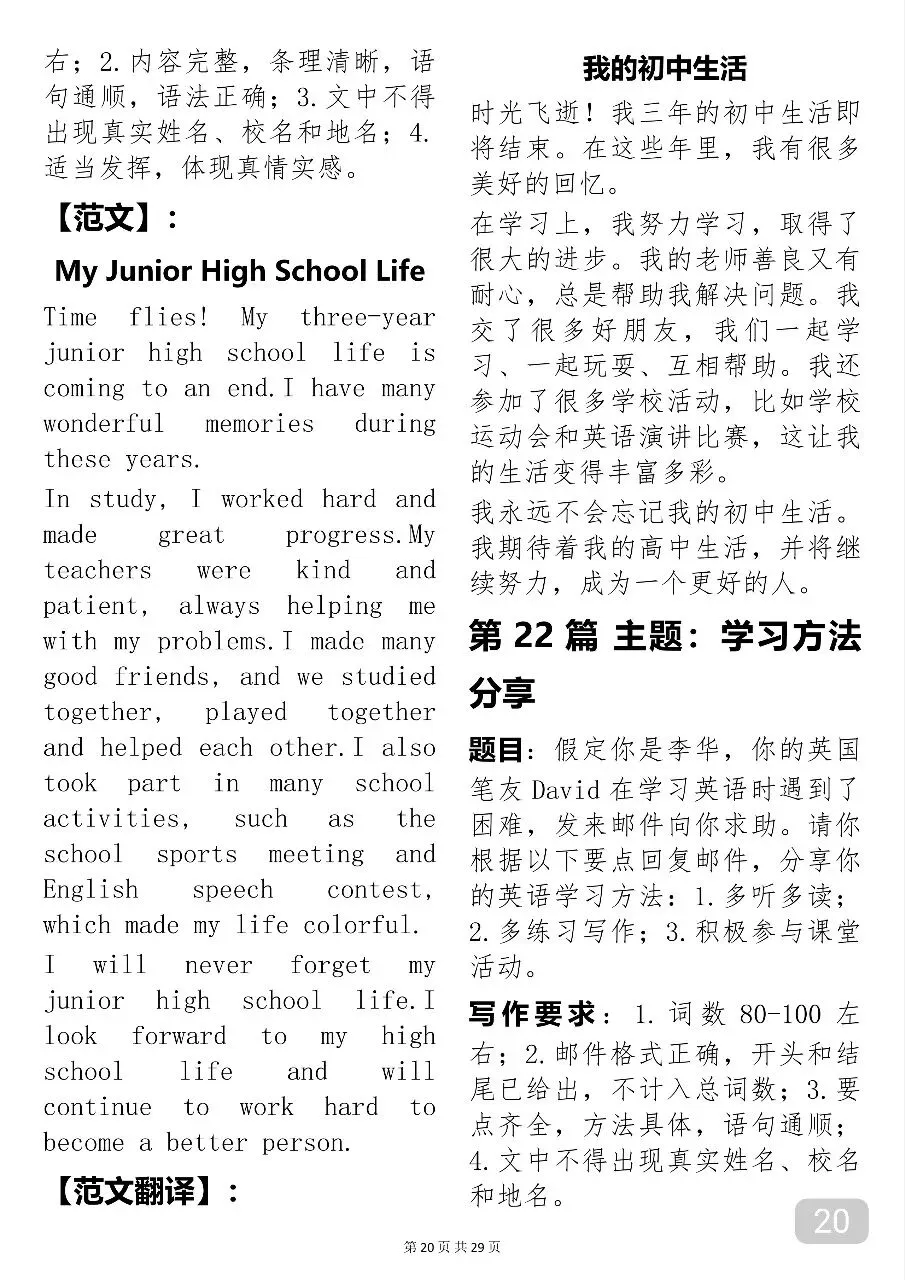 右；2.内容完整，条理清晰，语
句通顺，语法正确；3.文中不得
出现真实姓名、校名和地名；4.
适当发挥，体现真情实感。
【范文】：
My Junior High School Life
Time flies! My three-year
junior high school life is
coming to an end.I have many
wonderful memories during
these years.
In study, I worked hard and
made great progress.My
teachers were kind and
patient, always helping me
with my problems.I made many
good friends, and we studied
together, played together
and helped each other.I also
took part in many school
activities, such as the
school sports meeting and
English speech contest,
which made my life colorful.
I will never forget my
junior high school life.I
look forward to my high
school life and will
continue to work hard to
become a better person.
【范文翻译】：
我的初中生活
时光飞逝！我三年的初中生活即
将结束。在这些年里，我有很多
美好的回忆。
在学习上，我努力学习，取得了
很大的进步。我的老师善良又有
耐心，总是帮助我解决问题。我
交了很多好朋友，我们一起学
习、一起玩耍、互相帮助。我还
参加了很多学校活动，比如学校
运动会和英语演讲比赛，这让我
的生活变得丰富多彩。
我永远不会忘记我的初中生活。
我期待着我的高中生活，并将继
续努力，成为一个更好的人。
第 22 篇 主题：学习方法
分享
题目：假定你是李华，你的英国
笔友 David 在学习英语时遇到了
困难，发来邮件向你求助。请你
根据以下要点回复邮件，分享你
的英语学习方法：1.多听多读；
2.多练习写作；3.积极参与课堂
活动。
写作要求：1.词数 80-100 左
右；2.邮件格式正确，开头和结
尾已给出，不计入总词数；3.要
点齐全，方法具体，语句通顺；
4.文中不得出现真实姓名、校名
和地名。
20
第 20 页 共 29 页